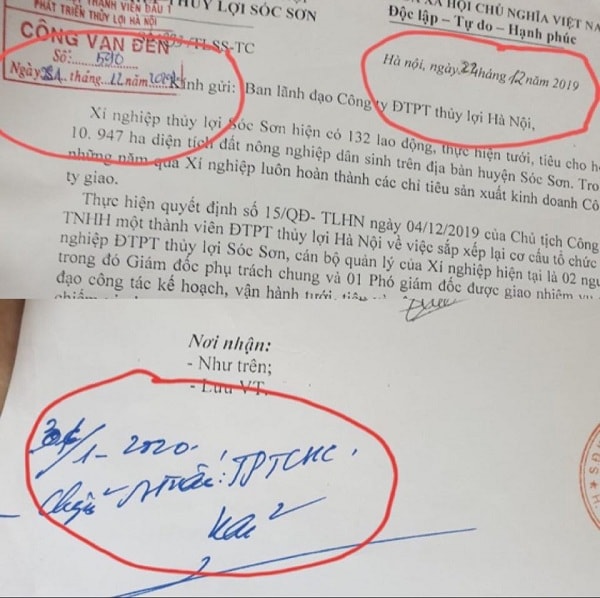 THỦY LỢI SÓC SƠN
HỘI CHỦ NGHĨA VIỆT NA
Độc lập – Tự do – Hạnh phúc
THÀNH VIÊN ĐẦU T
PHÁT TRIỂN THỦY LỢI HÀ NỘI
CÔNG VĂN ĐẾN
Số: 590
/TLSS-TC
Ngày tháng 12 năm
Hà nội, ngày tháng 12 năm 2019
Kính gửi: Ban lãnh đạo Công ty ĐTPT thủy lợi Hà Nội,
Xí nghiệp thủy lợi Sóc Sơn hiện có 132 lao động, thực hiện tưới, tiêu cho h
10. 947 ha diện tích đất nông nghiệp dân sinh trên địa bàn huyện Sóc Sơn. Tro
những năm qua Xí nghiệp luôn hoàn thành các chỉ tiêu sản xuất kinh doanh Cô
ty giao.
Thực hiện quyết định số 15/QĐ- TLHN ngày 04/12/2019 của Chủ tịch Công
TNHH một thành viên ĐTPT thủy lợi Hà Nội về việc sắp xếp lại cơ cấu tổ chức
nghiệp ĐTPT thủy lợi Sóc Sơn, cán bộ quản lý của Xí nghiệp hiện tại là 02 ngư
trong đó Giám đốc phụ trách chung và 01 Phó giám đốc được giao nhiệm vụ
đạo công tác kế hoạch, vận hành tưới, tiêu
Nơi nhận:
- Như trên;
- Lưu VT.
/1-2020.
TPTCHC.